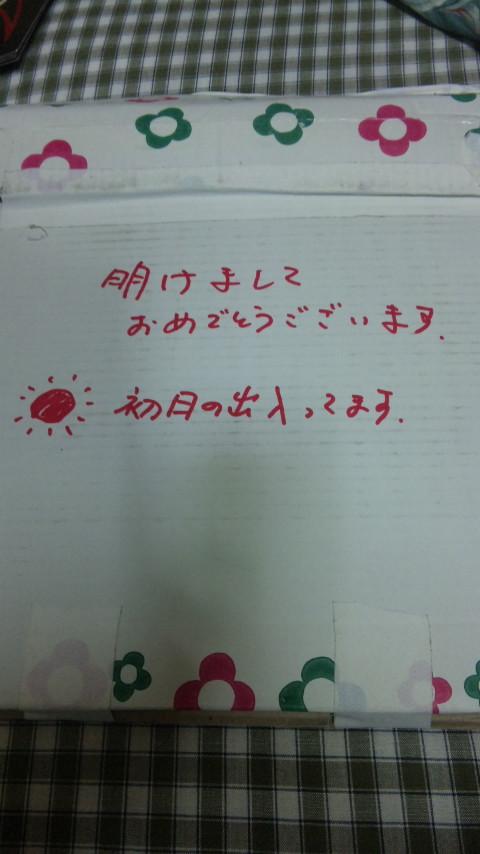 明けまして
おめでとうございます.
初日の出入ってます.